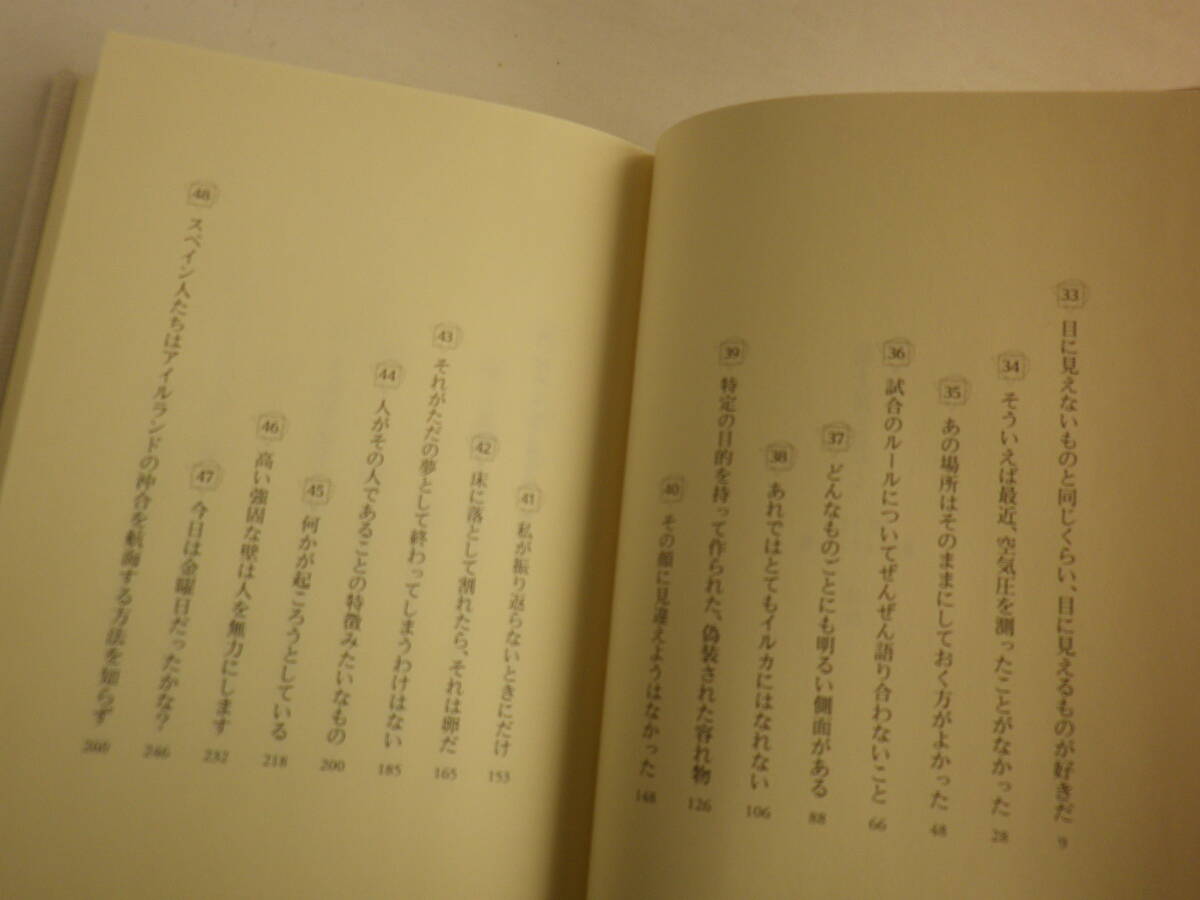 33 目に見えないものと同じくらい、目に見えるものが好きだ 9
34 そういえば最近、空気圧を測ったことがなかった 28
35 あの場所はそのままにしておく方がよかった 48
36 試合のルールについてぜんぜん語り合わないこと 66
37 どんなものごとにも明るい側面がある 88
38 あれではとてもイルカにはなれない 106
39 特定の目的を持って作られた、偽装された容れ物 126
40 その顔に見違えようはなかった 148
41 私が振り返らないときにだけ 153
42 床に落として割れたら、それは卵だ 165
43 それがただの夢として終わってしまうわけはない 185
44 人がその人であることの特徴みたいなもの 200
45 何かが起ころうとしている 218
46 高い強固な壁は人を無力にします 232
47 今日は金曜日だったかな? 246
48 スペイン人たちはアイルランドの沖合を航海する方法を知らず